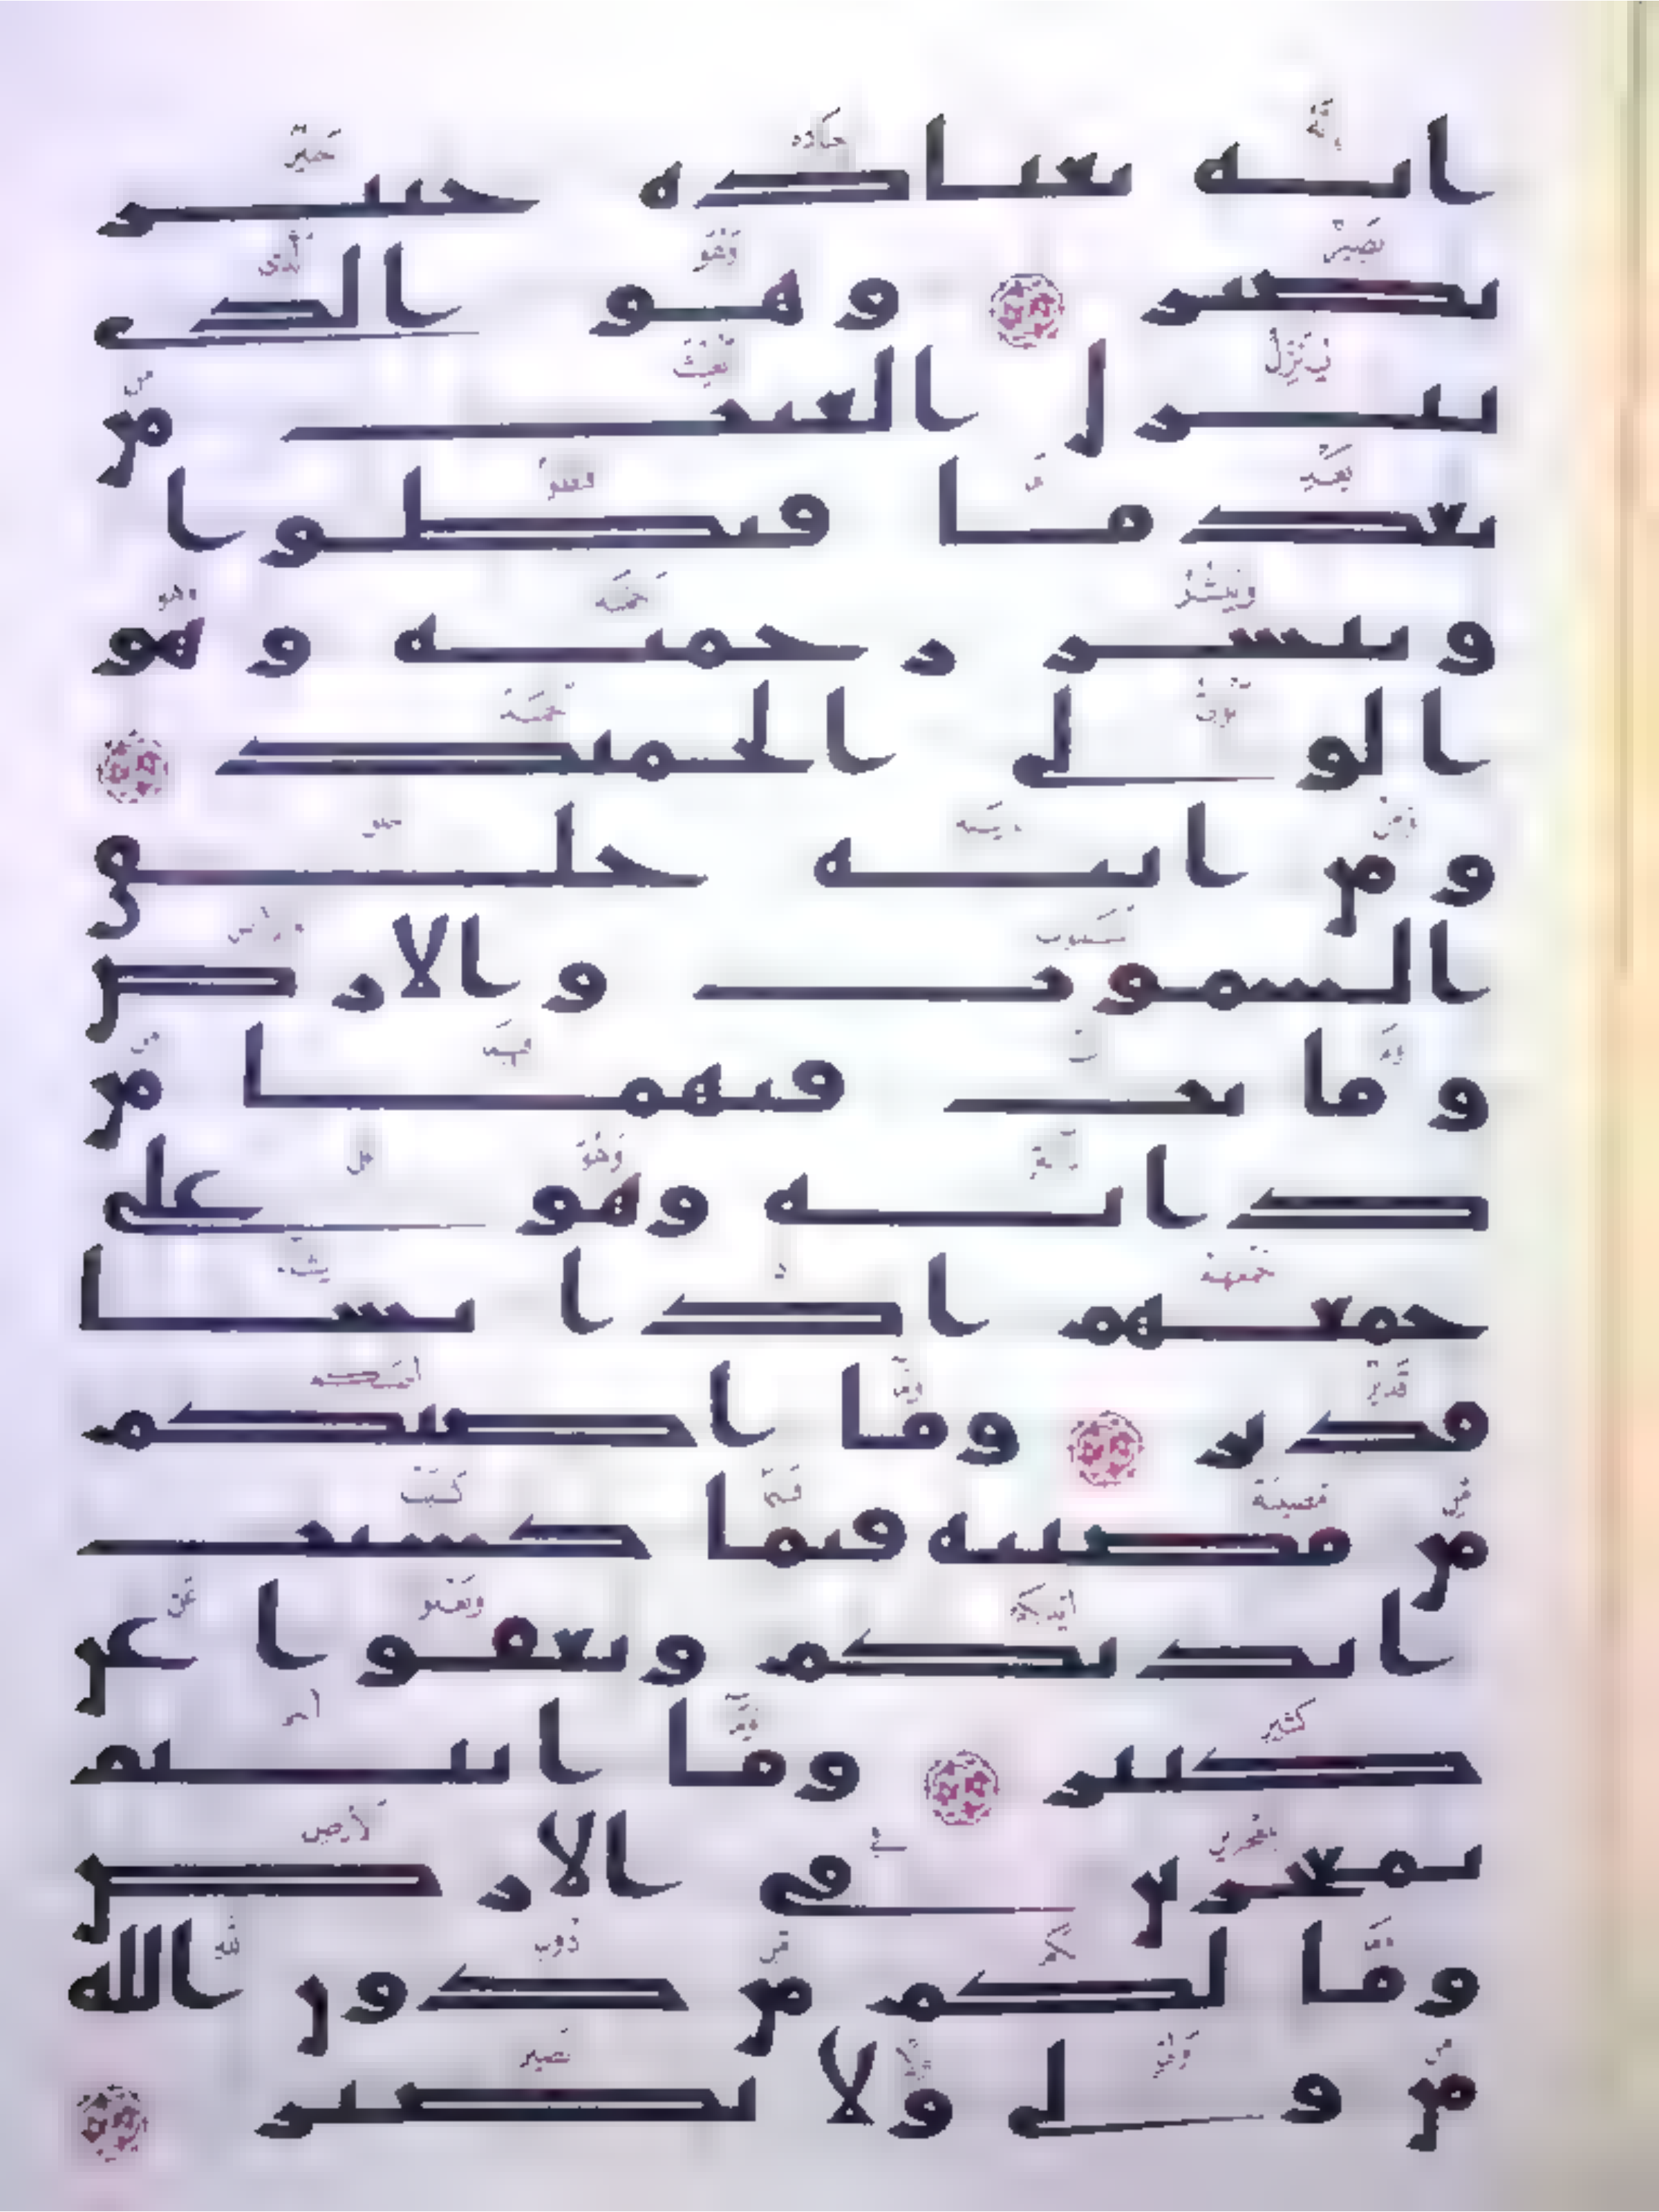 انه بعباده خبير
بصير وهو الذي
ينزل الغيث من
بعد ما قنطوا
وينشر رحمته وهو
الولي الحميد
ومن ايته خلق
السموت والارض
وما بث فيهما من
دابه وهو على
جمعهم اذا يشا
قدير وما اصبكم
من مصيبه فبما كسبت
ايديكم ويعفوا عن
كثير وما انتم
بمعجزين في الارض
وما لكم من دون الله
من ولي ولا نصير